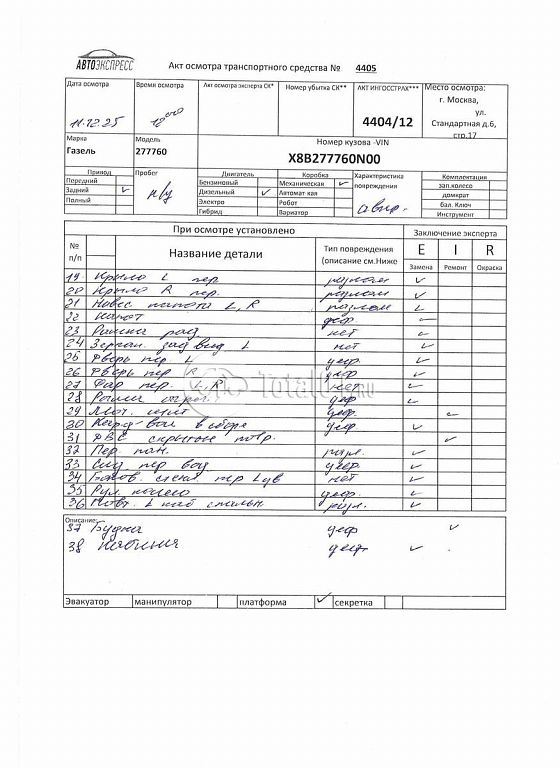 АВТОЭКСПРЕСС
Акт осмотра транспортного средства № 4405
Дата осмотра
Время осмотра
Акт осмотра эксперта СК*
Номер убытка СК**
АКТ ИНГОССТРАХ***
Место осмотра:
г. Москва,
ул.
Стандартная д.6,
стр.17
11.12.25
12 00
4404/12
Марка
Модель
Номер кузова -VIN
Газель
277760
X8B277760N00
Привод
Пробег
Двигатель
Коробка
Характеристика повреждения
Комплектация
Передний
Бензиновый
Механическая ✓
зап.колесо
Задний ✓
н/у
Дизельный ✓
Автомат кая
авар.
домкрат
Полный
Электро
Робот
бал. Ключ
Гибрид
Вариатор
Инструмент
При осмотре установлено
Заключение эксперта
№ п/п
Название детали
Тип повреждения (описание см.Ниже
E I R
Замена Ремонт Окраска
19. Крыло L пер разлом ✓
20 Крыло R пер. разлом ✓
21 Навес капота L, R разлом
22 Капот деф.
23 Рамка рад нет ✓
24 Зеркал. зад вид L нет ✓
25 Дверь пер L деф. ✓
26 Дверь пер R деф ✓
27 Фар пер. L, R нет
28 деф
29 Мот. щит деф.
30 в сборе деф. ✓
31 ДВС скрытые повр. ✓
32 Пер. пан. разл. ✓
33 Сид пер вод деф ✓
34 пер L дв нет ✓
35 Рул колесо деф. ✓
36 L каб разл. ✓
Описание:
37 Будка деф ✓
38 Кабина деф ✓
TotalCar.ru
Эвакуатор манипулятор платформа ✓ секретка